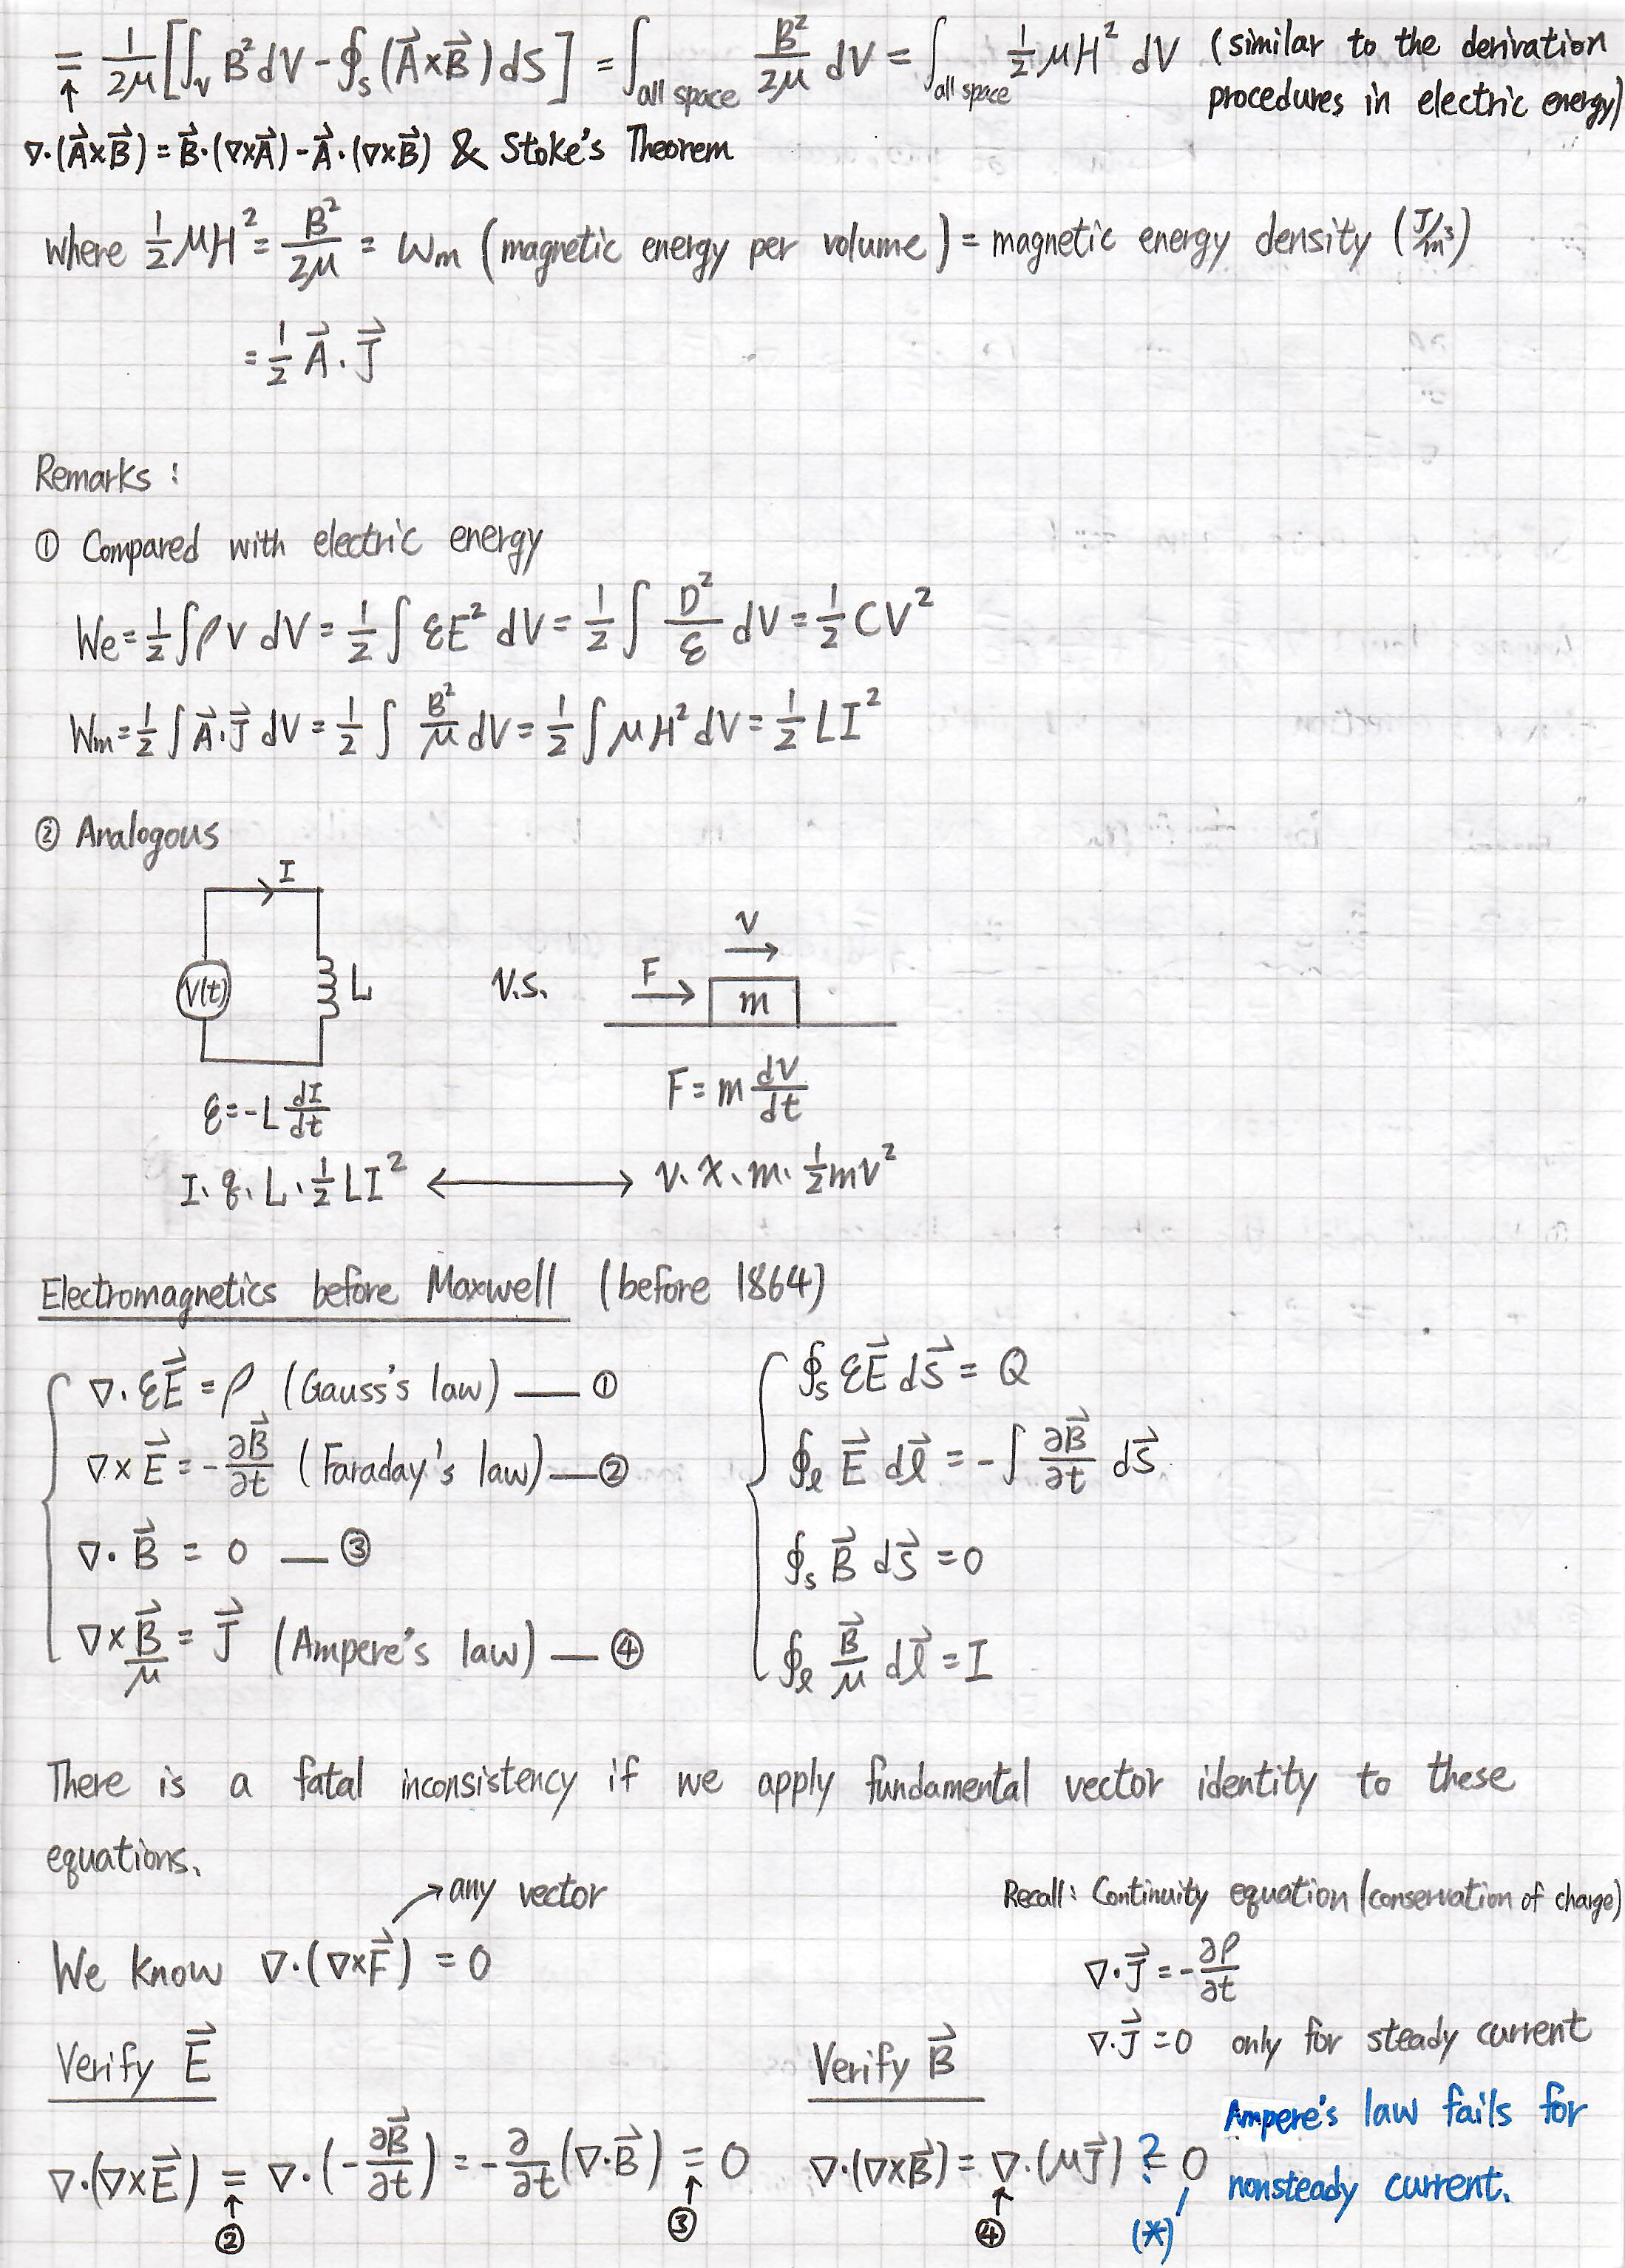 = 1/2μ [∫_V B² dV - ∮_S (A⃗×B⃗) dS] = ∫_all space B²/2μ dV = ∫_all space 1/2 μH² dV (similar to the derivation
↑ procedures in electric energy)
∇·(A⃗×B⃗) = B⃗·(∇×A⃗) - A⃗·(∇×B⃗) & Stoke's Theorem
Where 1/2 μH² = B²/2μ = Wm (magnetic energy per volume) = magnetic energy density (J/m³)
= 1/2 A⃗·J⃗
Remarks:
① Compared with electric energy
We = 1/2 ∫ρV dV = 1/2 ∫ εE² dV = 1/2 ∫ D²/ε dV = 1/2 CV²
Wm = 1/2 ∫ A⃗·J⃗ dV = 1/2 ∫ B²/μ dV = 1/2 ∫ μH² dV = 1/2 LI²
② Analogous
I
V(t) L
V.S.
V
F → m
ℰ = -L dI/dt
F = m dV/dt
I、q、L、1/2 LI² ⟷ V、x、m、1/2 mv²
Electromagnetics before Maxwell (before 1864)
∇·εE⃗ = ρ (Gauss's law) — ①
∇×E⃗ = -∂B⃗/∂t (Faraday's law) — ②
∇·B⃗ = 0 — ③
∇×B⃗/μ = J⃗ (Ampere's law) — ④
∮_S εE⃗ dS⃗ = Q
∮_ℓ E⃗ dℓ⃗ = -∫ ∂B⃗/∂t dS⃗
∮_S B⃗ dS⃗ = 0
∮_ℓ B⃗/μ dℓ⃗ = I
There is a fatal inconsistency if we apply fundamental vector identity to these
equations.
→ any vector
We know ∇·(∇×F⃗) = 0
Recall: Continuity equation (conservation of charge)
∇·J⃗ = -∂ρ/∂t
∇·J⃗ = 0 only for steady current
Verify E⃗
∇·(∇×E⃗) = ∇·(-∂B⃗/∂t) = -∂/∂t (∇·B⃗) = 0
↑ ② ↑ ③
Verify B⃗
∇·(∇×B⃗) = ∇·(μJ⃗) ?= 0
↑ ④ (*)
Ampere's law fails for
nonsteady current.